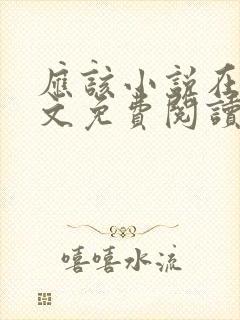 應該小說在
文免費閱讀
嘻嘻水流